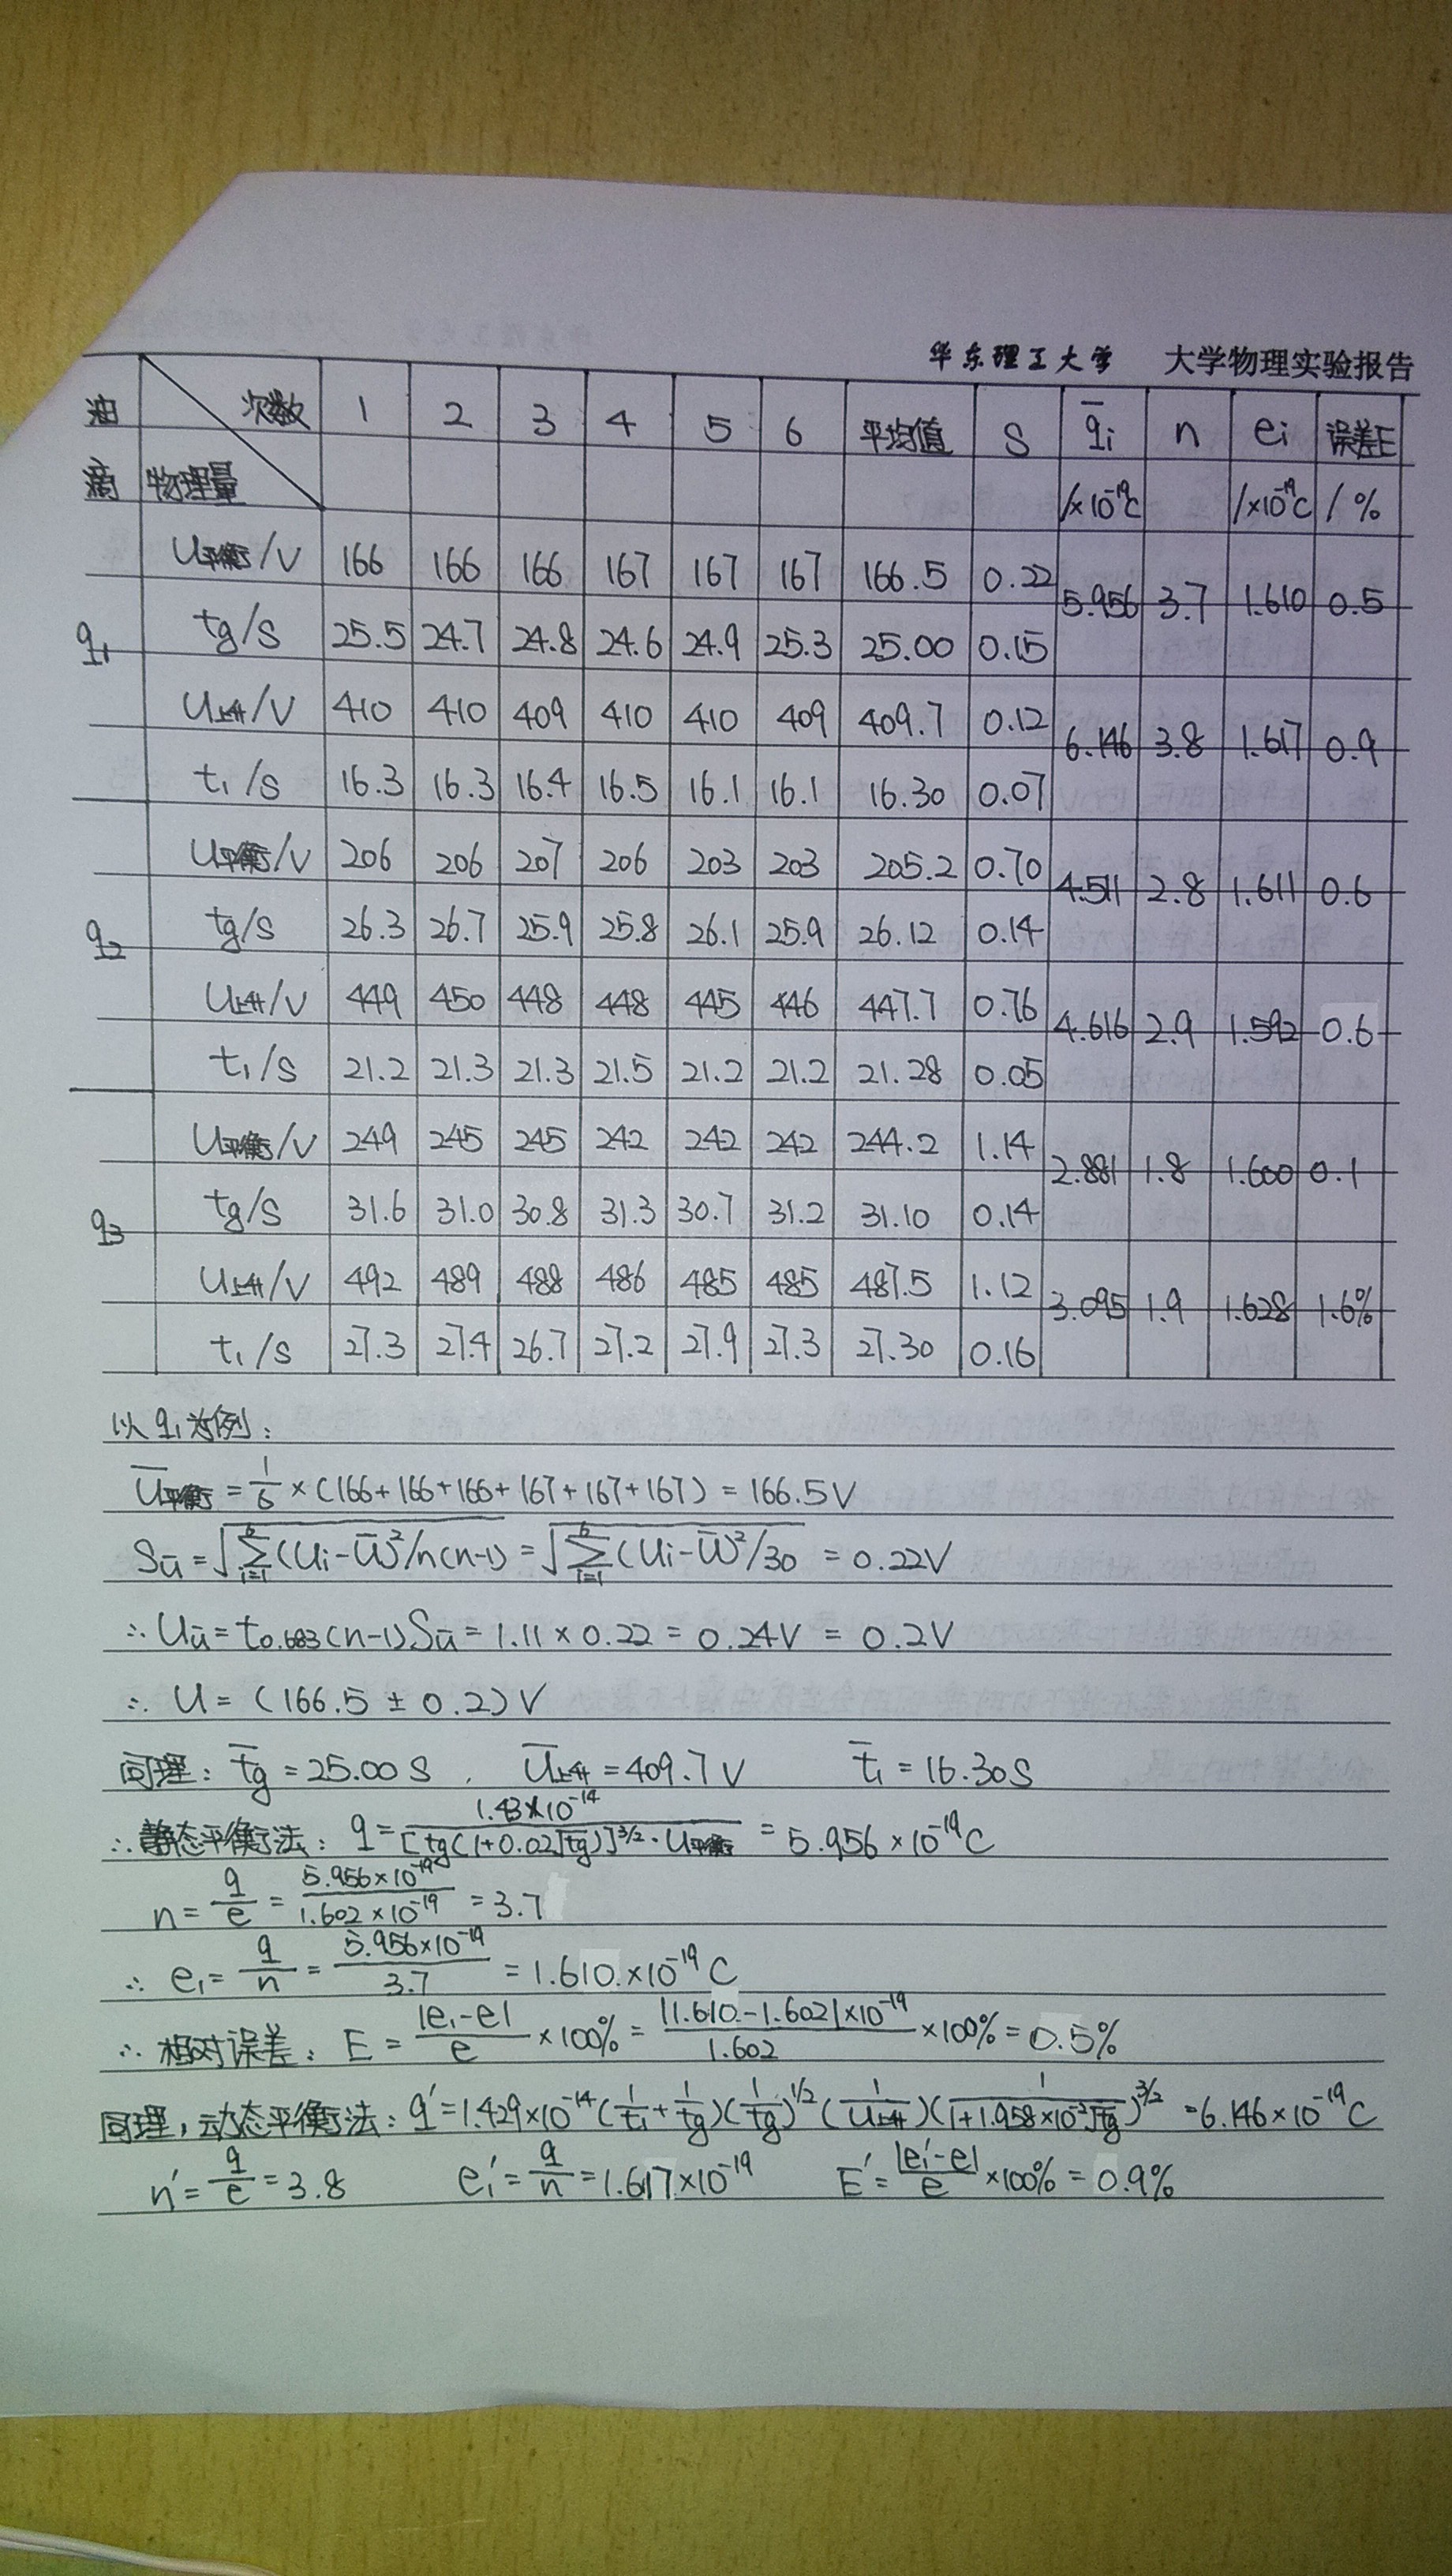 华东理工大学 大学物理实验报告
油滴 次数 物理量 1 2 3 4 5 6 平均值 S q̄i n ei 误差E
/×10⁻¹⁹C /×10⁻¹⁹C /%
q₁ U平衡/V 166 166 166 167 167 167 166.5 0.22 5.956 3.7 1.610 0.5
tg/s 25.5 24.7 24.8 24.6 24.9 25.3 25.00 0.15
U上升/V 410 410 409 410 410 409 409.7 0.12 6.146 3.8 1.617 0.9
t₁/s 16.3 16.3 16.4 16.5 16.1 16.1 16.30 0.07
q₂ U平衡/V 206 206 207 206 203 203 205.2 0.70 4.511 2.8 1.611 0.6
tg/s 26.3 26.7 25.9 25.8 26.1 25.9 26.12 0.14
U上升/V 449 450 448 448 445 446 447.7 0.76 4.616 2.9 1.592 0.6
t₁/s 21.2 21.3 21.3 21.5 21.2 21.2 21.28 0.05
q₃ U平衡/V 249 245 245 242 242 242 244.2 1.14 2.881 1.8 1.600 0.1
tg/s 31.6 31.0 30.8 31.3 30.7 31.2 31.10 0.14
U上升/V 492 489 488 486 485 485 487.5 1.12 3.095 1.9 1.628 1.6%
t₁/s 27.3 27.4 26.7 27.2 27.9 27.3 27.30 0.16
以q₁为例:
Ū平衡 = 1/6 × (166+166+166+167+167+167) = 166.5V
Sū = √(∑(i=1→6)(Ui-Ū)²/n(n-1)) = √(∑(i=1→6)(Ui-Ū)²/30) = 0.22V
∴ Uū = t0.683(n-1)Sū = 1.11 × 0.22 = 0.24V = 0.2V
∴ U = (166.5 ± 0.2)V
同理: t̄g = 25.00s , Ū上升 = 409.7V t̄₁ = 16.30s
∴ 静态平衡法: q = 1.43×10⁻¹⁴/([tg(1+0.02√tg)]^3/2 · U平衡) = 5.956 × 10⁻¹⁹C
n = q/e = 5.956×10⁻¹⁹/1.602×10⁻¹⁹ = 3.7
∴ e₁ = q/n = 5.956×10⁻¹⁹/3.7 = 1.610.×10⁻¹⁹C
∴ 相对误差: E = |e₁-e|/e ×100% = |1.610.-1.602|×10⁻¹⁹/1.602 ×100% = 0.5%
同理,动态平衡法: q' = 1.429×10⁻¹⁴(1/t₁+1/tg)(1/tg)^1/2(1/U上升)(1/(1+1.958×10⁻²√tg))^3/2 = 6.146×10⁻¹⁹C
n' = q/e = 3.8 e₁' = q/n = 1.617×10⁻¹⁹ E' = |e₁'-e|/e ×100% = 0.9%